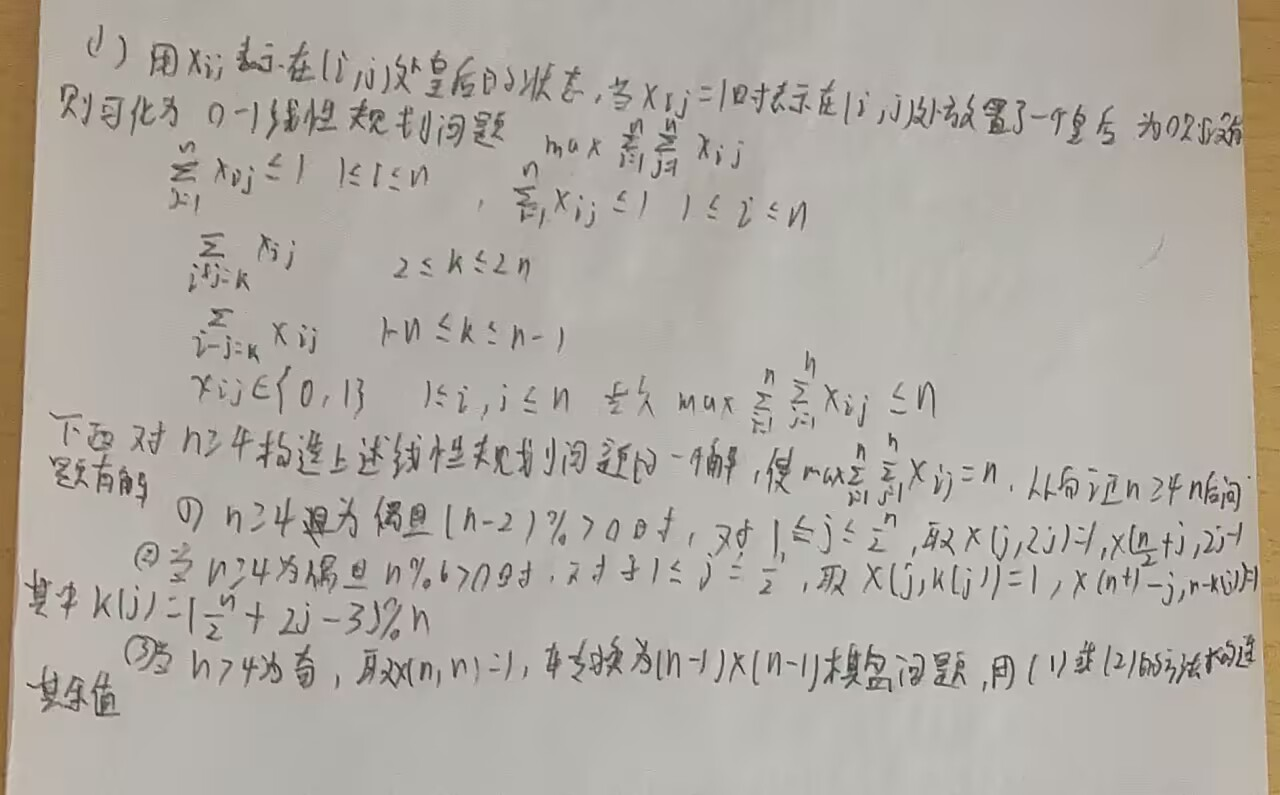 (1) 用 xij 表示在(i,j)处皇后的状态,当 xij=1时表示在(i,j)处放置了一个皇后 为0则没有
则可化为 0-1线性规划问题 max ∑_{i=1}^{n} ∑_{j=1}^{n} xij
∑_{j=1}^{n} xij ≤ 1 1≤i≤n , ∑_{i=1}^{n} xij ≤ 1 1≤i≤n
∑_{i+j=k} xij 2≤k≤2n
∑_{i-j=k} xij 1-n≤k≤n-1
xij∈{0,1} 1≤i,j≤n max ∑_{i=1}^{n} ∑_{j=1}^{n} xij ≤ n
下面对 n≥4构造上述线性规划问题的一个解,使max ∑_{i=1}^{n} ∑_{j=1}^{n} xij = n. 从而证n≥4 n后问
题有解
① n≥4 为偶且 (n-2)%6>0时, 对 1≤j≤n/2, 取x(j,2j)=1, x(n/2+j,2j-1
② 当 n≥4为偶且 n%6>0时, 对于1≤j=n/2, 取 x(j,k(j))=1, x(n+1-j,n-k(j))=1
其中 k(j)=(n/2+2j-3)%n
③当 n>4为奇, 取x(n,n)=1, 转换为(n-1)×(n-1)棋盘问题,用(1)或(2)的方法构造
其余值